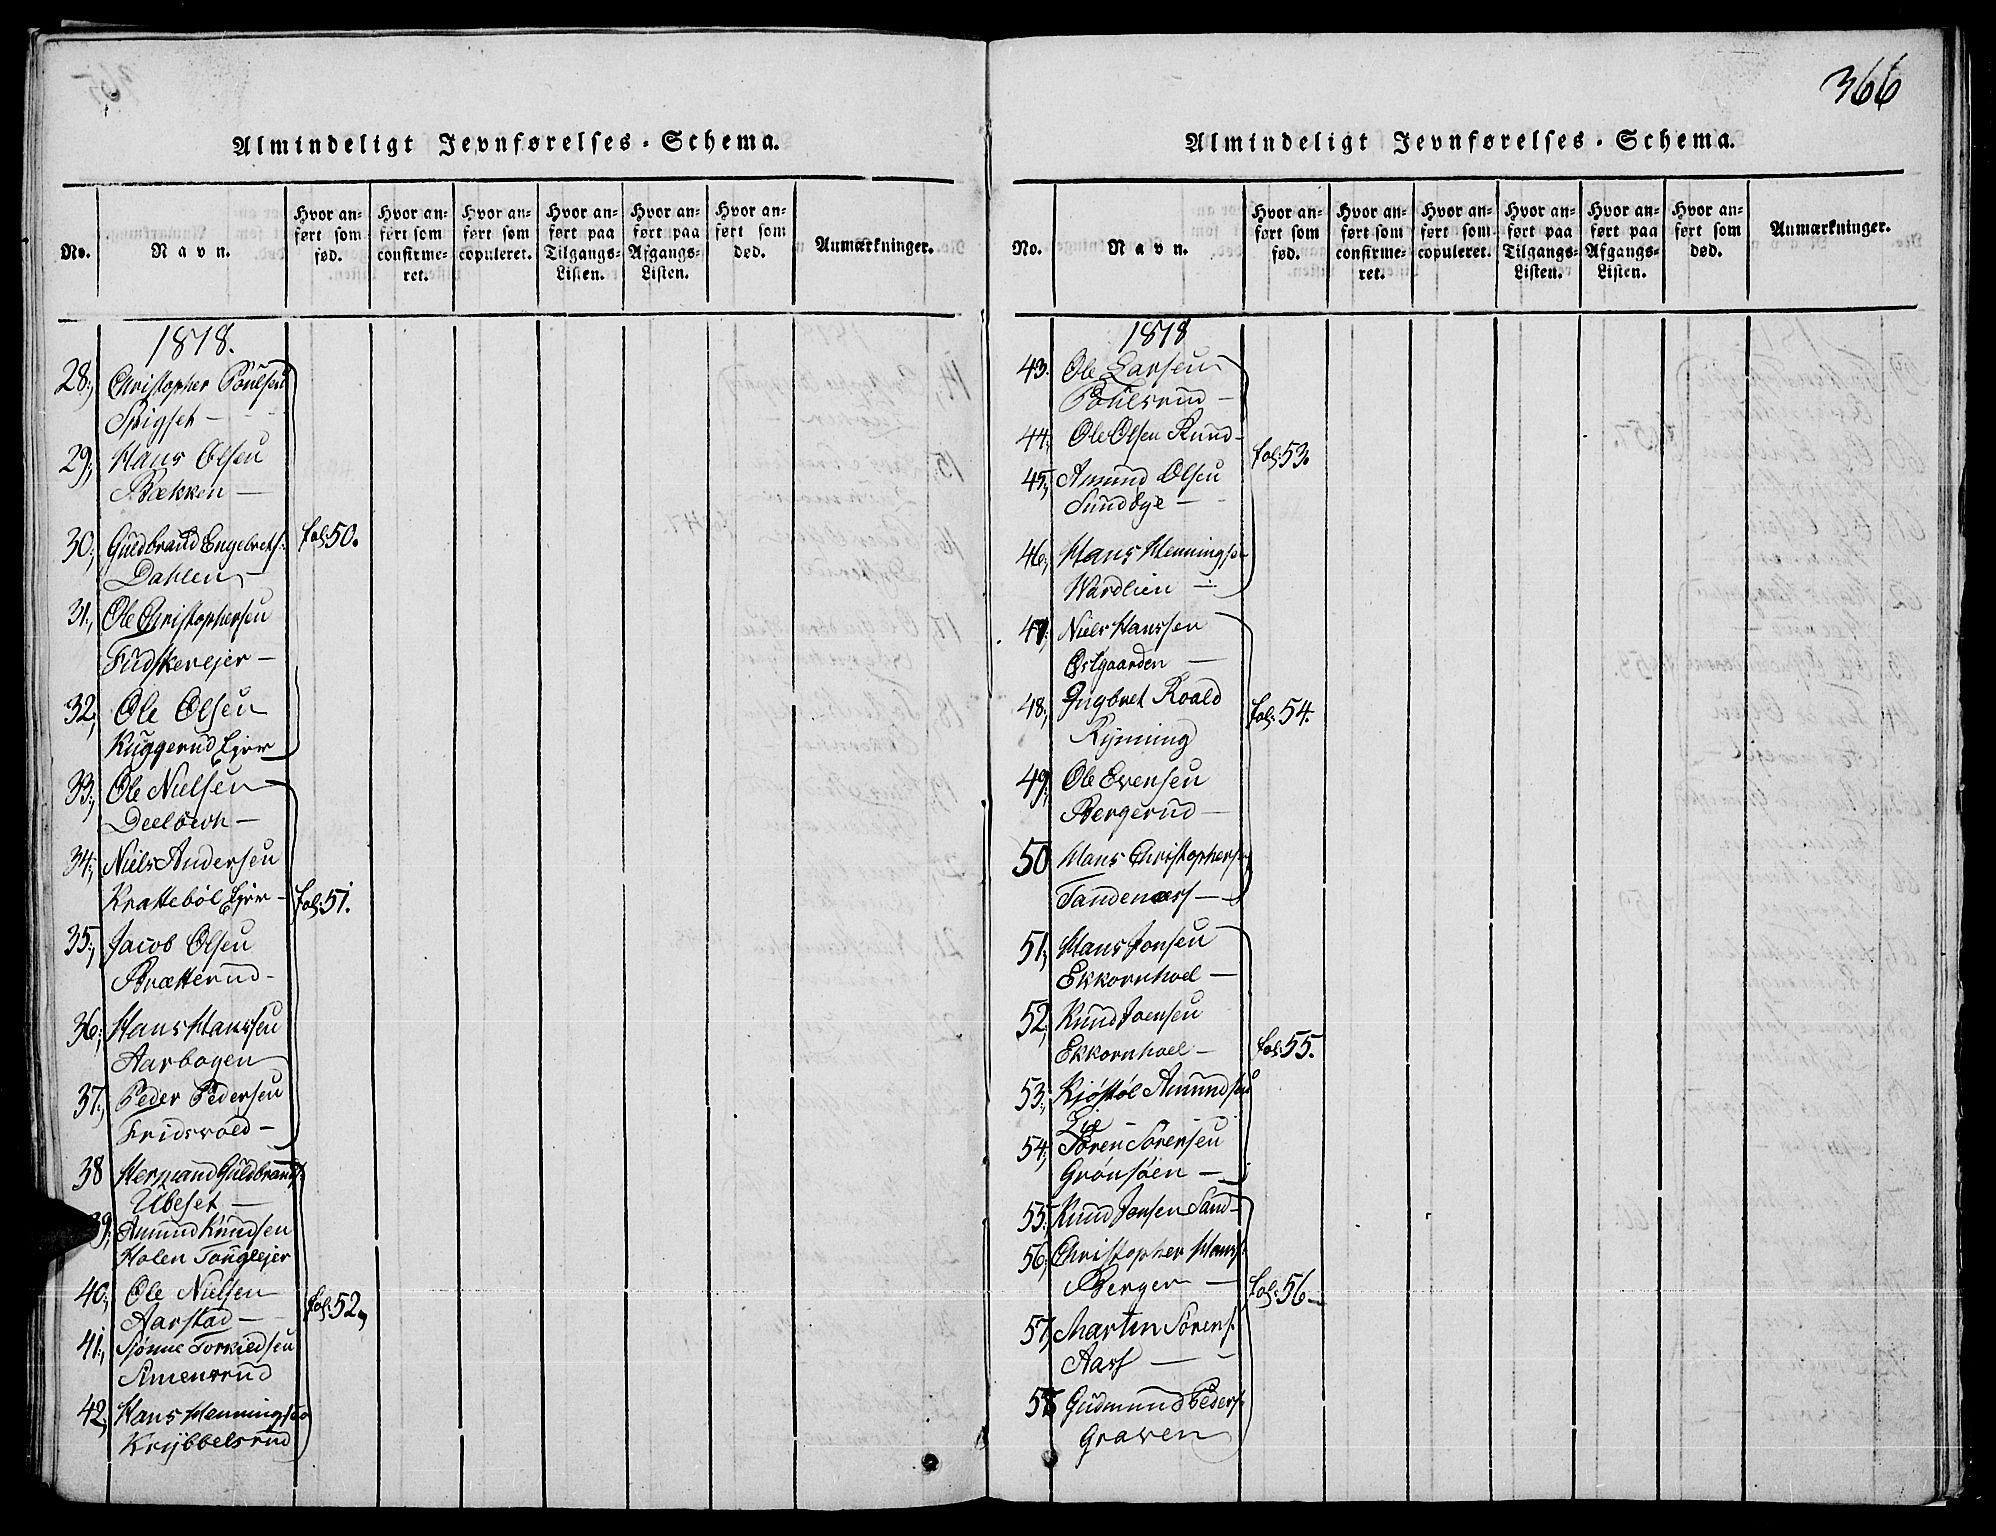 366
Almindeligt Jevnførelses-Schema.
No.
Navn.
Hvor anført som fød.
Hvor anført som confirmeret.
Hvor anført som copuleret.
Hvor anført paa Tilgangs-Listen.
Hvor anført paa Afgangs-Listen.
Hvor anført som død.
Anmærkninger.
1818.
28., Christopher Poulsen
Spigset —
29., Hans Olsen
Bækken —
30., Guldbrand Engebrets:
Dahlen —
fol: 50.
31., Ole Christophersen
Fudskerejer —
32., Ole Olsen
Kuggerud Ejer
33., Ole Nielsen
34., Niels Andersen
Kratteböl Ejer —
fol: 51.
35., Jacob Olsen
Brætterud —
36., Hans Hanssen
Aarbogen
37., Peder Pedersen
Fridsvold —
38 Hermand Guldbrands:
Ubeset —
39., Amund Knudsen
Holen Touglejer
40., Ole Nielsen
Aarstad —
fol: 52,
41., Sjönne Torkildsen
Simensrud
42., Hans Henningsen
Krybbelsrud
Almindeligt Jevnførelses-Schema.
No.
Navn.
Hvor anført som fød.
Hvor anført som confirmeret.
Hvor anført som copuleret.
Hvor anført paa Tilgangs-Listen.
Hvor anført paa Afgangs-Listen.
Hvor anført som død.
Anmærkninger.
1818
43. Ole Larsen
Poulsrud —
44., Ole Olsen Rund —
fol: 53.
45., Amund Olsen
Sundbye —
46., Hans Henningsen
Wardlien —
47., Niels Hanssen
Östgaarden —
48., Ingbret Roald
Rynning
fol: 54.
49., Ole Evensen
Bergerud —
50 Hans Christophersen
Tandenæss —
51., Hans Jonsen
Ekkornhoel —
52., Knud Joensen
Ekkornhoel —
fol: 55.
53., Kjöstöl Amundsen
Lie
54., Sören Sörensen
Grönsöen —
55., Knud Jonsen Sand —
56., Christopher Hanss:
Berger —
fol: 56 —
57., Martin Sörens:
Aass —
58 Gudmund Peders:
Graven